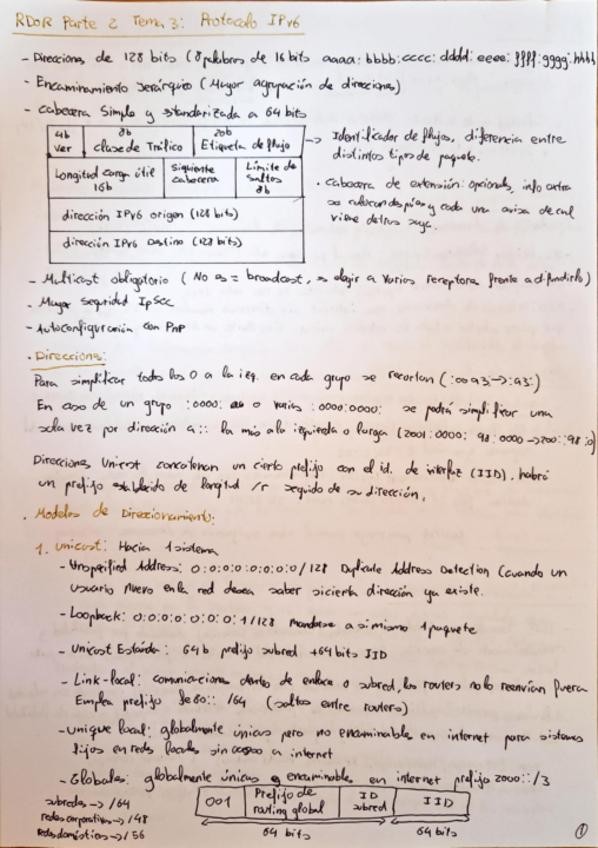 RDOR Parte 2 Tema 3: Protocolo IPv6
- Direcciones de 128 bits (8 palabras de 16 bits aaaa:bbbb:cccc:dddd:eeee:ffff:gggg:hhhh
- Encaminamiento Jerárquico (Mayor agrupación de direcciones)
- Cabecera Simple y estandarizada a 64 bits
4b ver
8b Clase de Tráfico
20b Etiqueta de flujo
-> Identificador de flujos, diferencia entre
distintos tipos de paquete.
Longitud carga útil 16b
Siguiente cabecera
Límite de saltos 8b
· Cabecera de extensión: opcionales, info extra
se colocan después y cada una avisa de cual
viene detras suya.
dirección IPv6 origen (128 bits)
dirección IPv6 Destino (128 bits)
- Multicast obligatorio (No es = broadcast, es elegir a varios receptora frente a difundirlo)
- Mayor seguridad IpSec
- Autoconfiguración con PnP
· Direcciones:
Para simplificar todos los 0 a la izq. en cada grupo se recortan (:00a3:->:a3:)
En caso de un grupo :0000: o varios :0000:0000: se podrá simplificar una
sola vez por dirección a :: la más a la izquierda o larga
Direcciones Unicast concatenan un cierto prefijo con el id. de interfaz (IID), habrá
un prefijo establecido de longitud /r seguido de su dirección.
· Modelos de Direccionamiento:
1. Unicast: Hacia 1 sistema
- Unspecified Address: 0:0:0:0:0:0:0:0/128 Duplicate Address Detection (cuando un
usuario nuevo en la red desea saber si cierta dirección ya existe.
- Loopback: 0:0:0:0:0:0:0:1/128 mandarse a si mismo 1 paquete
- Unicast Estándar: 64b prefijo subred + 64 bits IID
- Link-local: comunicaciones dentro de enlace o subred, los routers no lo reenvían fuera
Emplea prefijo fe80:: /64 (saltos entre routers)
- Unique local: globalmente únicas pero no encaminables en internet para sistemas
fijos en redes locales sin acceso a internet
- Globales: globalmente únicas y encaminables en internet prefijo 2000::/3
subredes -> /64
redes corporativas -> /48
Redes domésticas -> /56
001
Prefijo de routing global
ID subred
IID
64 bits
64 bits
1